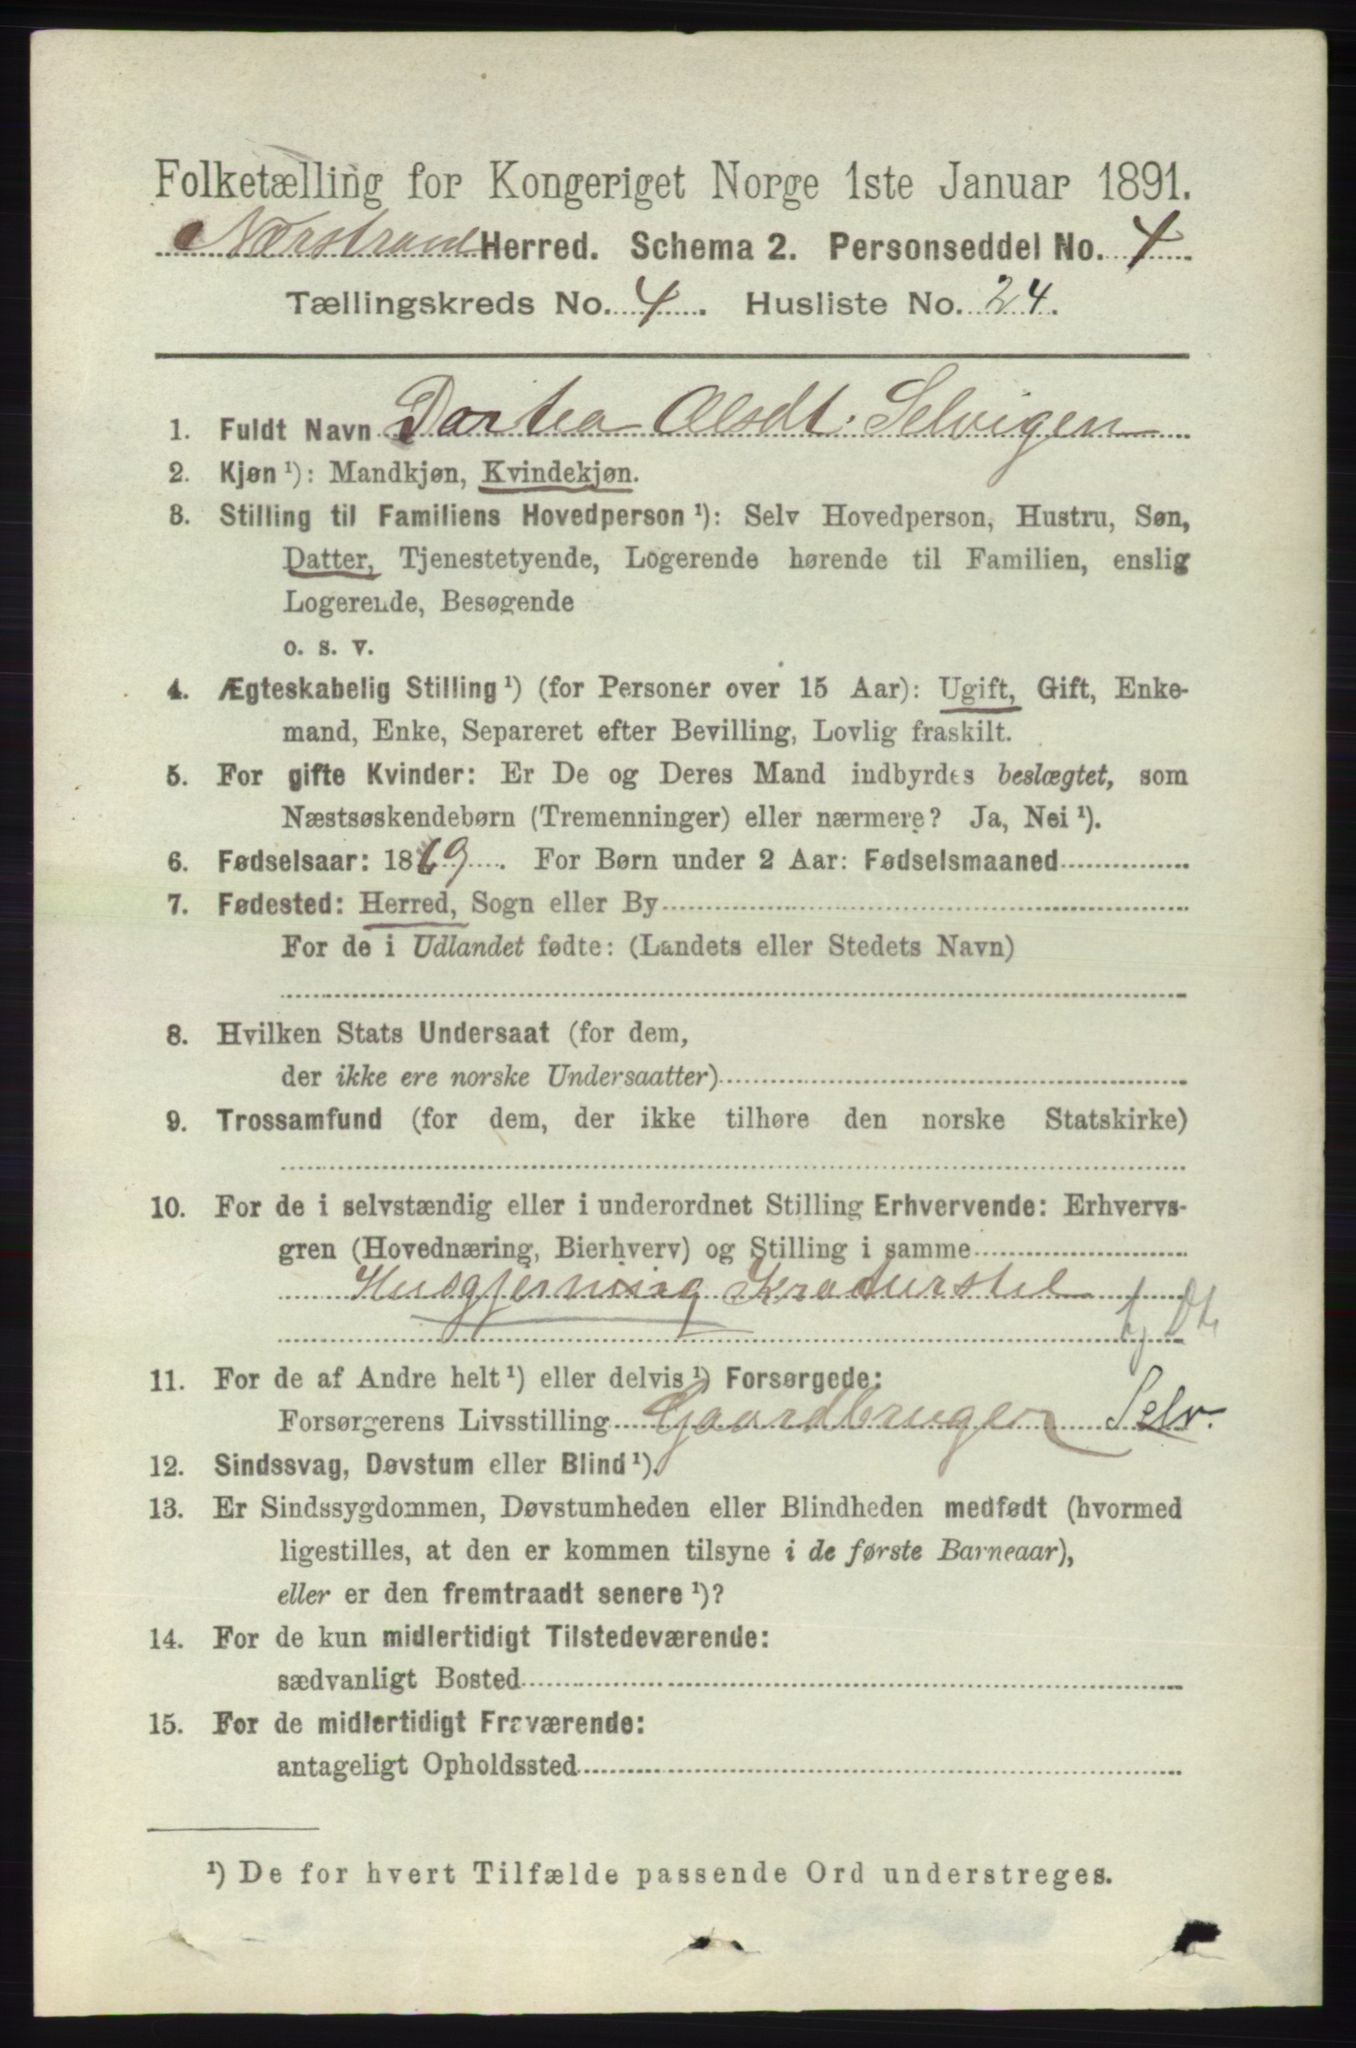 Folketælling for Kongeriget Norge 1ste Januar 1891.
Nærstrand Herred. Schema 2. Personseddel No. 4
Tællingskreds No. 4. Husliste No. 24.
1. Fuldt Navn Dortea Olsdt. Selvigen
2. Kjøn ¹): Mandkjøn, Kvindekjøn.
3. Stilling til Familiens Hovedperson ¹): Selv Hovedperson, Hustru, Søn,
Datter, Tjenestetyende, Logerende hørende til Familien, enslig
Logerende, Besøgende
o. s. v.
4. Ægteskabelig Stilling ¹) (for Personer over 15 Aar): Ugift, Gift, Enke-
mand, Enke, Separeret efter Bevilling, Lovlig fraskilt.
5. For gifte Kvinder: Er De og Deres Mand indbyrdes beslægtet, som
Næstsøskendebørn (Tremenninger) eller nærmere? Ja, Nei ¹).
6. Fødselsaar: 1869. For Børn under 2 Aar: Fødselsmaaned
7. Fødested: Herred, Sogn eller By
For de i Udlandet fødte: (Landets eller Stedets Navn)
8. Hvilken Stats Undersaat (for dem,
der ikke ere norske Undersaatter)
9. Trossamfund (for dem, der ikke tilhøre den norske Statskirke)
10. For de i selvstændig eller i underordnet Stilling Erhvervende: Erhvervs-
gren (Hovednæring, Bierhverv) og Stilling i samme
Husgjerning Kreaturstel
tj Dt.
11. For de af Andre helt ¹) eller delvis ¹) Forsørgede:
Forsørgerens Livsstilling Gaardbruger Selv.
12. Sindssvag, Døvstum eller Blind ¹).
13. Er Sindssygdommen, Døvstumheden eller Blindheden medfødt (hvormed
ligestilles, at den er kommen tilsyne i de første Barneaar),
eller er den fremtraadt senere ¹)?
14. For de kun midlertidigt Tilstedeværende:
sædvanligt Bosted
15. For de midlertidigt Fraværende:
antageligt Opholdssted
¹) De for hvert Tilfælde passende Ord understreges.